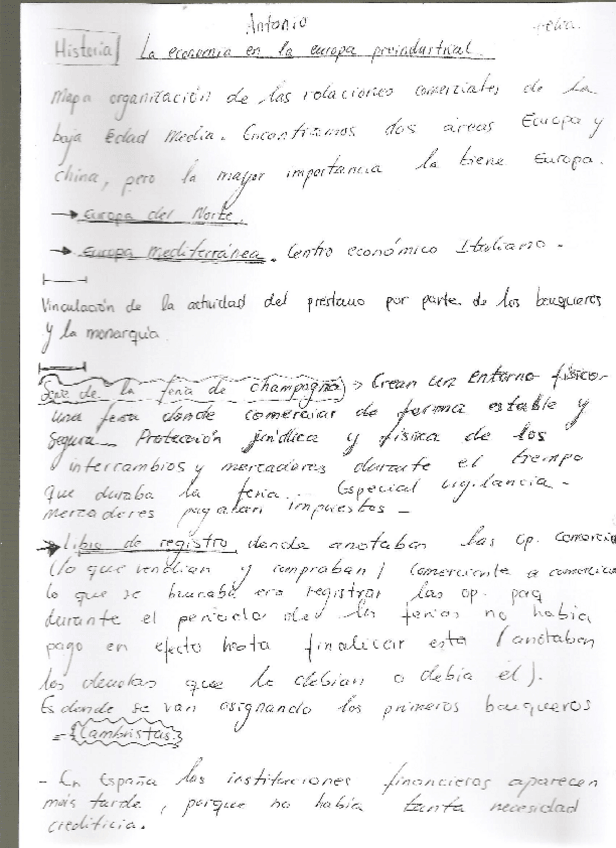 Antonio
Historia La economia en la europa preindustrial.
Mapa organización de las relaciones comerciales de la
baja Edad Media. Encontramos dos áreas Europa y
china, pero la mayor importancia la tiene Europa.
→ Europa del Norte.
→ Europa Mediterránea. Centro económico Italiano.
Vinculación de la actividad del préstamo por parte de los banqueros
y la monarquia
Sede de la feria de champagña → Crean un entorno físico
una feria donde comerciar de forma estable y
segura. Protección jurídica y física de los
intercambios y mercaderes durante el tiempo
que duraba la feria... Especial vigilancia -
mercaderes pagaban impuestos -
→ Libro de registro, donde anotaban las op. comercia
(lo que vendian y compraban) comerciante a comercia
lo que se buscaba era registrar las op. paq
durante el periodo de las ferias no habia
pago en efecto hasta finalizar esta (anotaban
las deudas que le debian o debia él).
Es donde se van asignando los primeros banqueros
= {Cambistas}
- En España las instituciones financieras aparecen
más tarde, porque no habia tanta necesidad
crediticia.